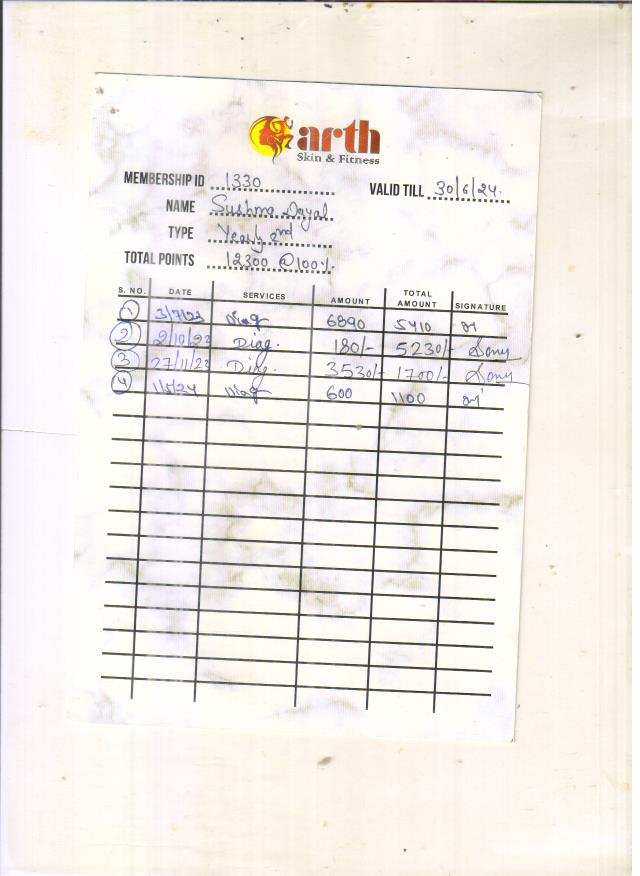 arth
Skin & Fitness
MEMBERSHIP ID 1330 VALID TILL 30/6/24.
NAME Sushma Dayal
TYPE Yearly 2nd
TOTAL POINTS 12300 @100%.
S. NO. DATE SERVICES AMOUNT TOTAL AMOUNT SIGNATURE
1 3/7/23 6890 5410
2 2/10/23 Diag. 180/- 5230/- Sony
3 27/11/23 Diag. 3530/- 1700/- Sony
4 600 1100